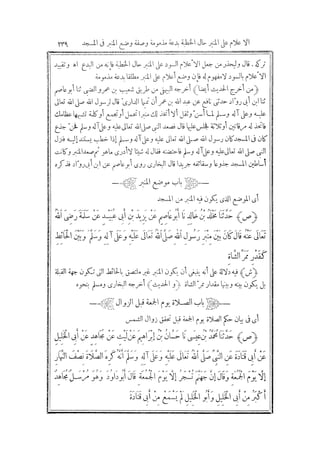 الاعلام على المنبر حال الخطبة بدعة مذمومة وصفة وضع المنبر فى المسجد ٢٣٩
تركه. قال وليحذر من جعل الاعلام السود على المنبر حال الخطبة فإنه من البدع اه وتقييد
الاعلام بالسود لامفهوم له فإن وضع أعلام على المنبر مطلقا بدعة مذمومة
(من أخرج الحديث أيضا) أخرجه البيهقى من طريق شعيب بن عمرو الضبى ثنا أبو عاصم
ثنا ابن أبى رواد حدثنى نافع عن عبد الله بن عمر أن تميما الدارى قال لرسول الله صلى الله تعالى
عليه وعلى آله وسلم لما أسن وثقل ألا أتخذ لك منبرا تحمل أوتجمع أوكلمة تشبهها عظامك
فاتخذ له مرقاتين أوثلاثة فجلس عليها قال فصعد النبى صلى الله تعالى عليه وعلى آله وسلم فحن جذع
كان فى المسجد كان رسول الله صلى الله تعالى عليه وعلى آله وسلم إذا خطب يستند إليه فنزل
النبى صلى الله تعالى عليه وعلى آله وسلم فاحتضنه فقال له شيئا لاأدرى ماهو ثم صعد المنبر وكانت
أساطين المسجد جذوعا وسقائفه جريدا قال البخارى روى أبو عاصم عن ابن أبى رواد فذكره
باب موضع المنبر
أى الموضع الذى يكون فيه المنبر من المسجد
(ص) حَدَّثَنَا مَخْلَدُ بْنُ خَالِدٍ نَا أَبُو عَاصِمٍ عَنْ يَزِيدَ بْنِ أَبِى عُبَيْدٍ عَنْ سَلَمَةَ رَضِىَ اللهُ
تَعَالَى عَنْهُ قَالَ كَانَ بَيْنَ مِنْبَرِ رَسُولِ اللهِ صَلَّى اللهُ تَعَالَى عَلَيْهِ وَعَلَى آلِهِ وَسَلَّمَ وَبَيْنَ الْحَائِطِ
كَقَدْرِ مَمَرِّ الشَّاةِ
(ش) فيه دلالة على أنه ينبغى أن يكون المنبر غير ملتصق بالحائط التى تكون جهة القبلة
بل يكون بينه وبينها مقدار ممر الشاة (و الحديث) أخرجه البخارى ومسلم بنحوه
باب الصلاة يوم الجمعة قبل الزوال
أى فى بيان حكم الصلاة يوم الجمعة قبل تحقق زوال الشمس
(ص) حَدَّثَنَا مُحَمَّدُ بْنُ عِيسَى نَا حَسَّانُ بْنُ إِبْرَاهِيمَ عَنْ لَيْثٍ عَنْ مُجَاهِدٍ عَنْ أَبِى الْخَلِيلِ
عَنْ أَبِى قَتَادَةَ عَنِ النَّبِىِّ صَلَّى اللهُ تَعَالَى عَلَيْهِ وَعَلَى آلِهِ وَسَلَّمَ أَنَّهُ كَرِهَ الصَّلَاةَ نِصْفَ النَّهَارِ
إِلَّا يَوْمَ الْجُمُعَةِ وَقَالَ إِنَّ جَهَنَّمَ تُسْجَرُ إِلَّا يَوْمَ الْجُمُعَةِ قَالَ أَبُو دَاوُدَ وَهُوَ مُرْسَلٌ مُجَاهِدٌ
أَكْبَرُ مِنْ أَبِى الْخَلِيلِ وَأَبُو الْخَلِيلِ لَمْ يَسْمَعْ مِنْ أَبِى قَتَادَةَ